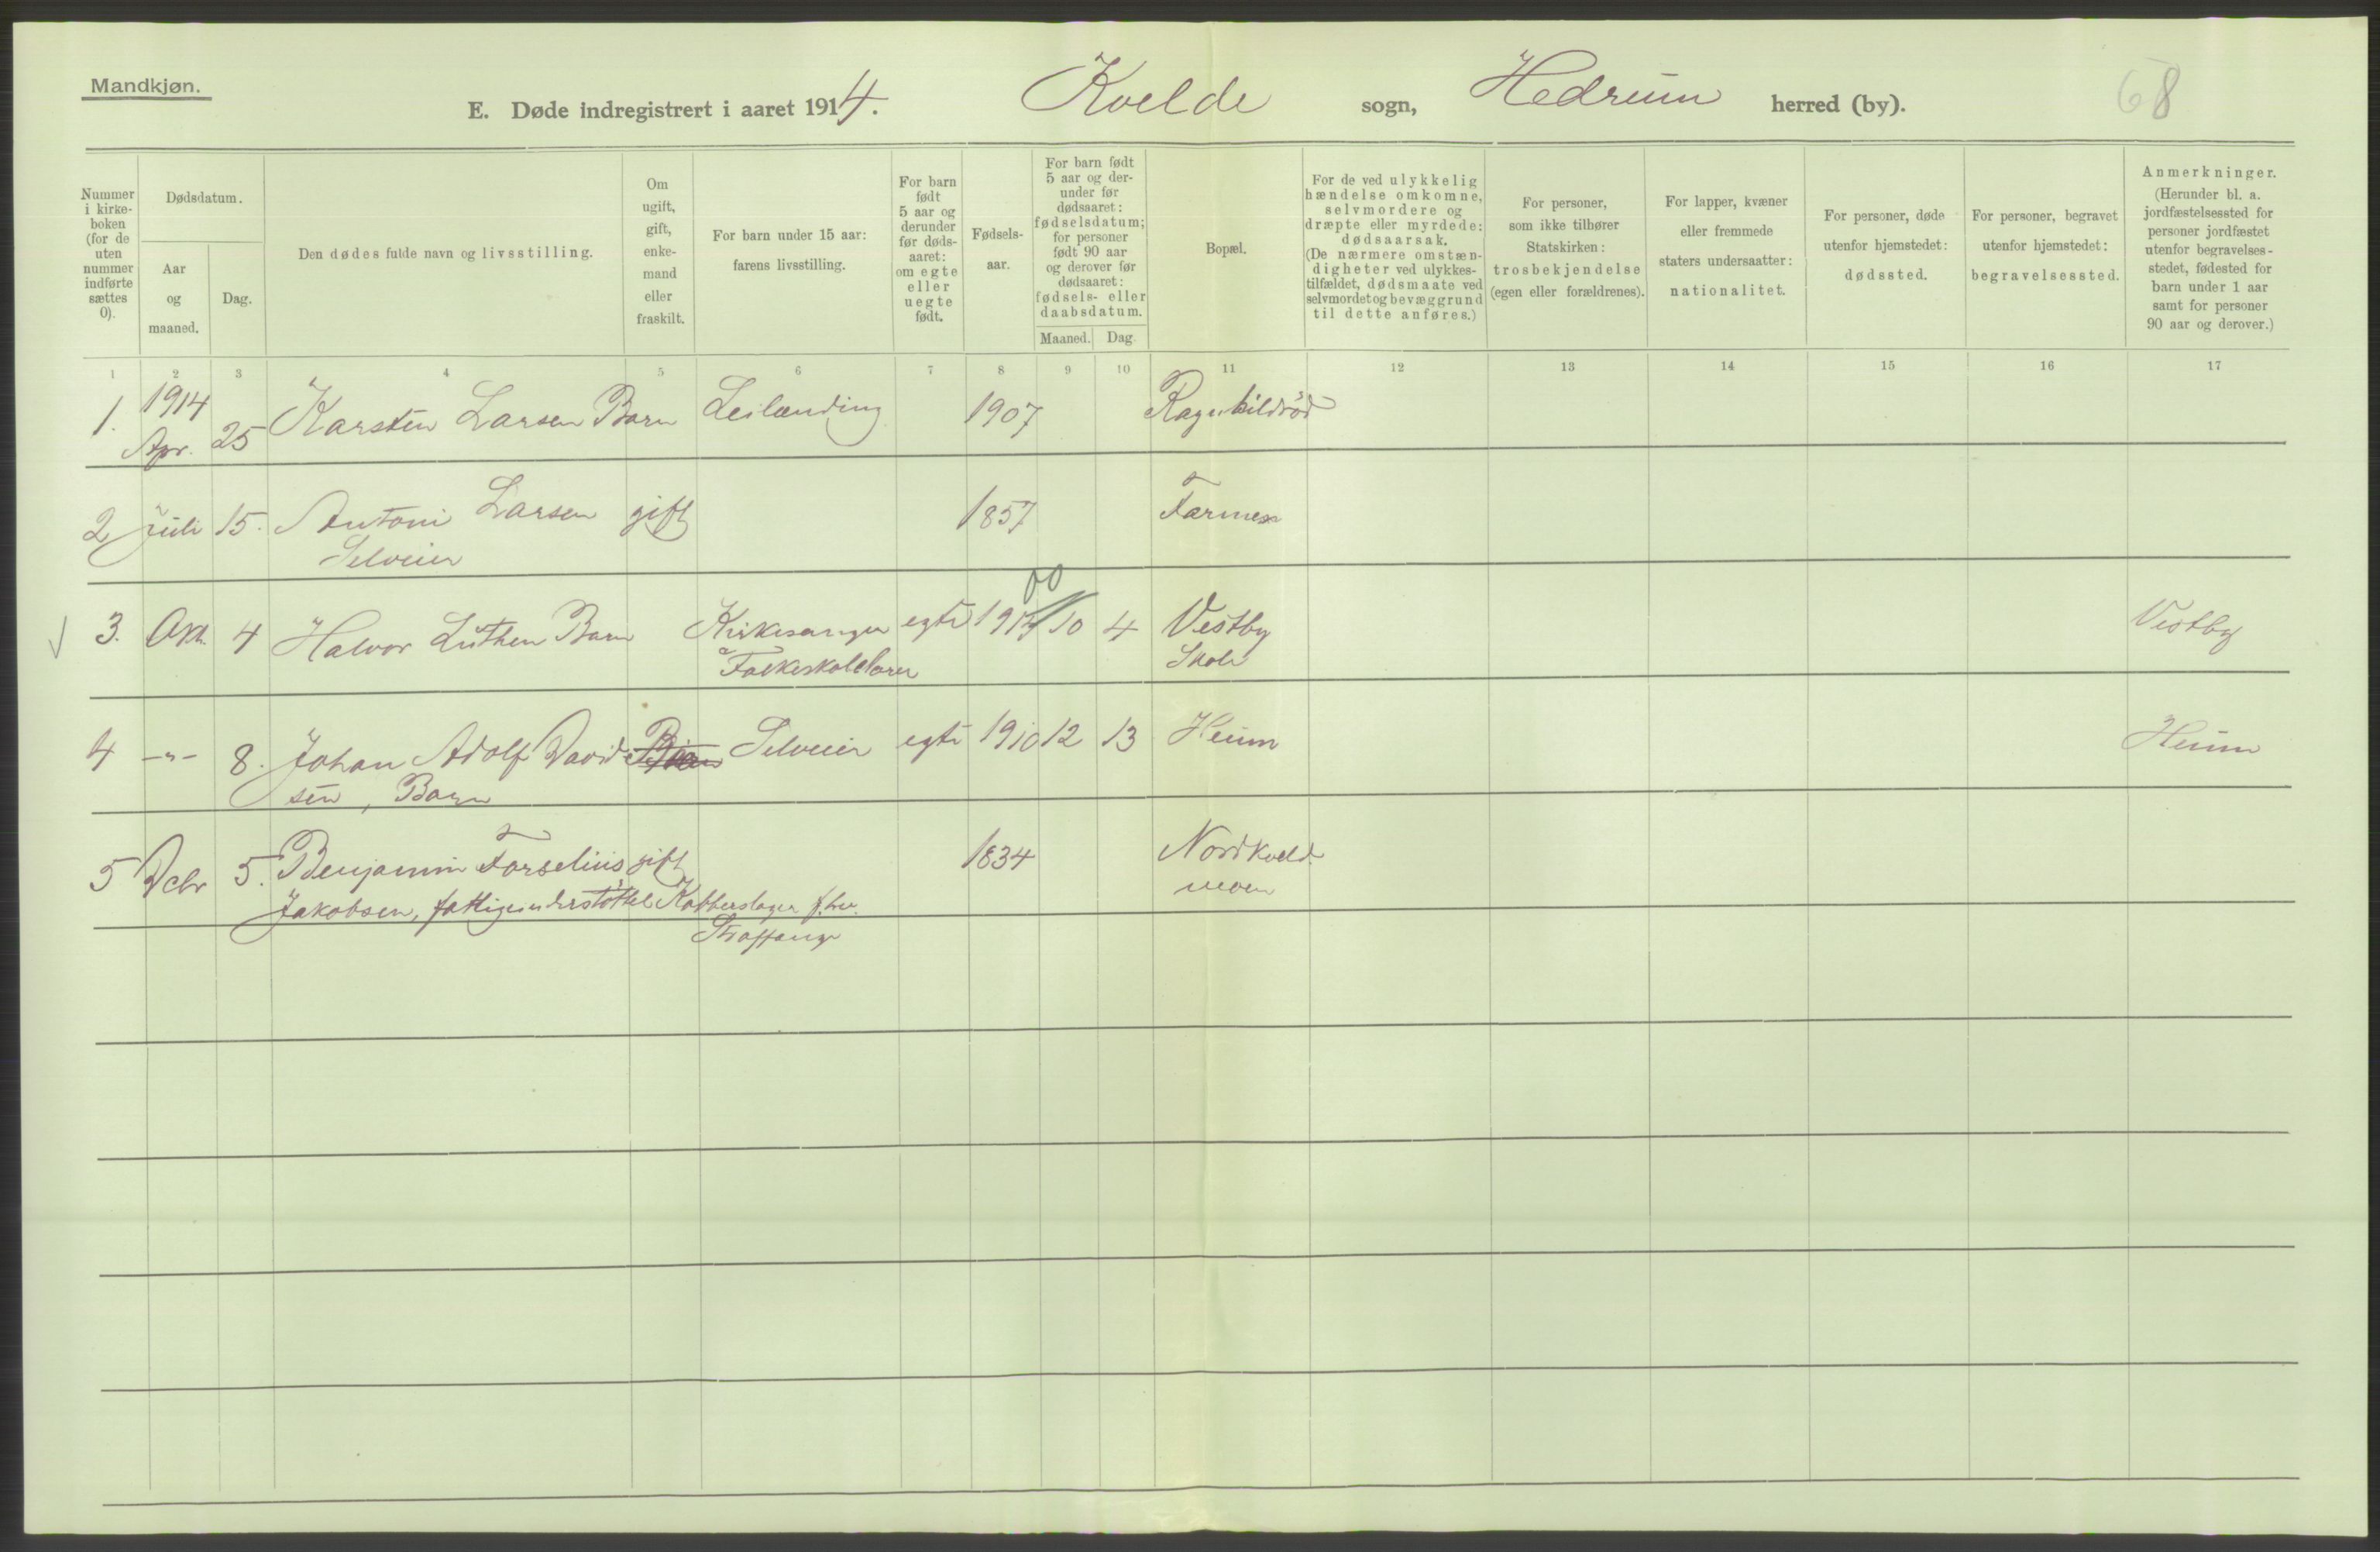 Mandkjøn.
E. Døde indregistrert i aaret 1914. Kvelde sogn, Hedrum herred (by). 68
Nummer i kirke- boken (for de uten nummer indførte sættes 0).
Dødsdatum.
Aar og maaned.
Dag.
Den dødes fulde navn og livsstilling.
Om ugift, gift, enke- mand eller fraskilt.
For barn under 15 aar: farens livsstilling.
For barn født 5 aar og derunder før døds- aaret: om egte eller uegte født.
Fødsels- aar.
For barn født 5 aar og der- under før dødsaaret: fødselsdatum; for personer født 90 aar og derover før dødsaaret: fødsels- eller daabsdatum.
Maaned. Dag
Bopæl.
For de ved ulykkelig hændelse omkomne, selvmordere og dræpte eller myrdede: dødsaarsak. (De nærmere omstæn- digheter ved ulykkes- tilfældet, dødsmaate ved selvmordet og bevæggrund til dette anføres.)
For personer, som ikke tilhører Statskirken: trosbekjendelse (egen eller forældrenes).
For lapper, kvæner eller fremmede staters undersaatter: nationalitet.
For personer, døde utenfor hjemstedet: dødssted.
For personer, begravet utenfor hjemstedet: begravelsessted.
Anmerkninger. (Herunder bl. a. jordfæstelsessted for personer jordfæstet utenfor begravelses- stedet, fødested for barn under 1 aar samt for personer 90 aar og derover.)
1 2 3 4 5 6 7 8 9 10 11 12 13 14 15 16 17
1. 1914 Apr. 25 Karsten Larsen Barn Leilænding 1907 Ragnhildrød
2 Juli 15. Antoni Larsen gift 1857 Farmen
Selveier
3. Okt. 4 Halvor Luthen Barn Kirkesanger egte 1914 10 4 Vestby Vestby
a Folkeskolelærer Skole
4 -"- 8. Johan Adolf David Barn Selveier egte 1910 12 13 Heum Heum
sen, Barn
5 Dcbr 5. Benjamin Forselius gift 1834 Nordkveld
Jakobsen, fattigunderstøttet Kobberslager f.hv. moen
Straffange